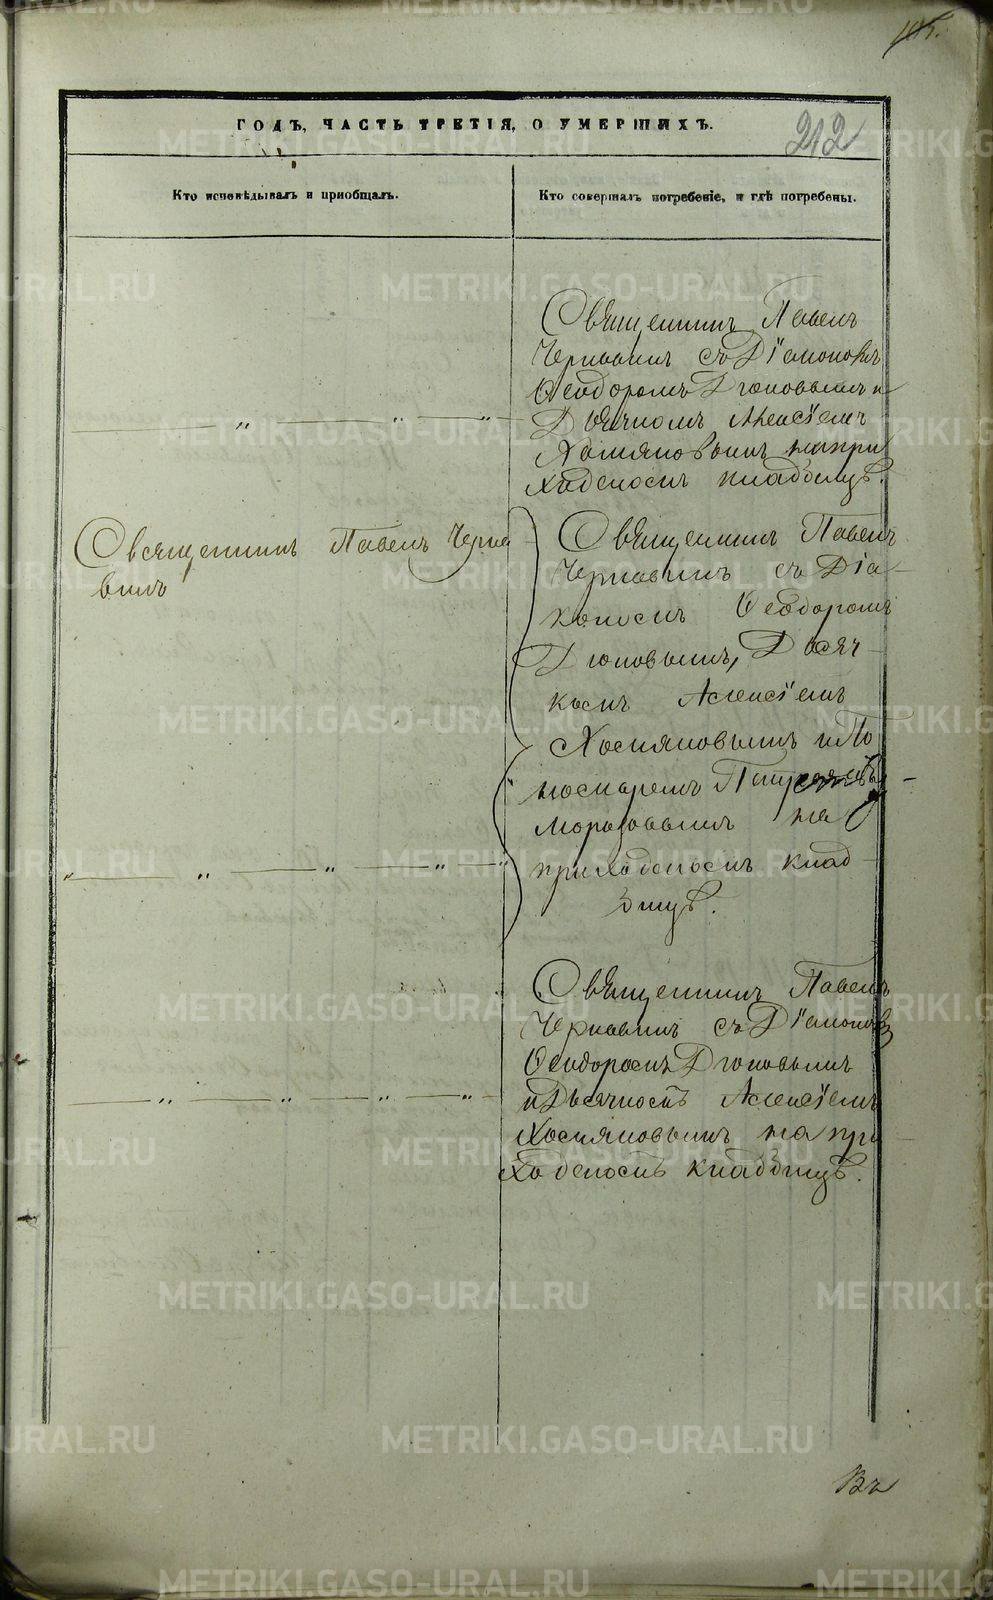 105.
ГОДЪ, ЧАСТЬ ТРЕТІЯ, О УМЕРШИХЪ.
212
Кто исповѣдывалъ и пріобщалъ.
Кто совершалъ погребеніе, и гдѣ погребены.
Священникъ Павелъ
Чернавинъ съ Діакономъ
Ѳеодоромъ Дюковымъ и
Дьячкомъ Алексіемъ
Хомяковымъ на при
ходскомъ кладбищѣ.
Священникъ Павелъ Черна
винъ
Священникъ Павелъ
Чернавинъ съ Діа
кономъ Ѳеодоромъ
Дюковымъ, Дьяч
комъ Алексіемъ
Хомяковымъ и По
номаремъ
на
приходскомъ клад
бищѣ.
Священникъ Павелъ
Чернавинъ съ Діакономъ
Ѳеодоромъ Дюковымъ
и Дьячкомъ Алексіемъ
Хомяковымъ на при
ходскомъ кладбищѣ.
Въ
METRIKI.GASO-URAL.RU